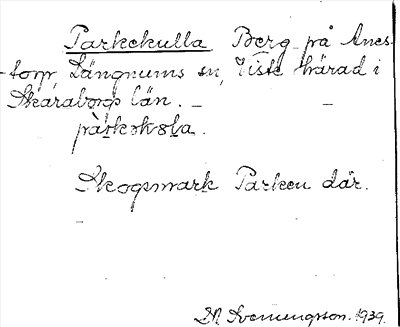 Parkekulla Berg på Anes-
torp, Längnums sn, Viste härad i
Skaraborgs län.
Skogsmark Parken där.
1939.